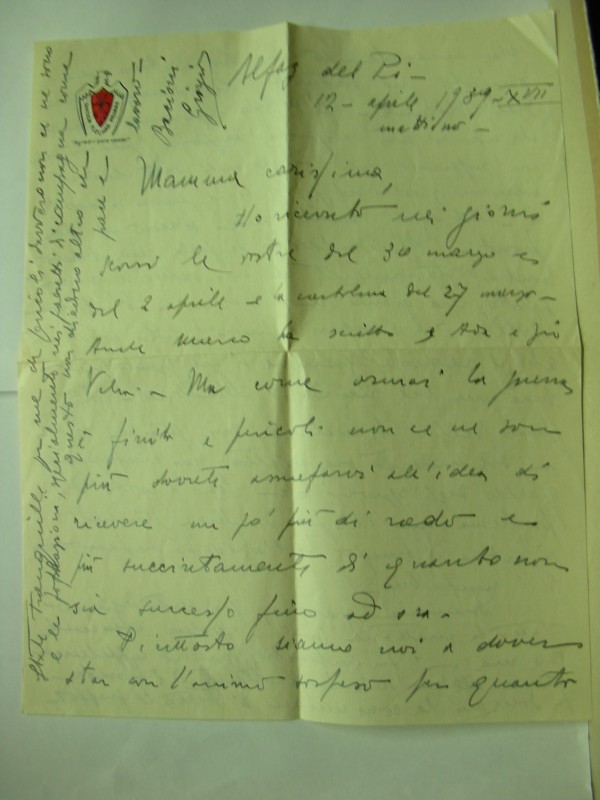 Alfaz del Pi -
12 - aprile 1939 - XVII
mattino -
Mamma carissima,
Ho ricevuto nei giorni
scorsi le vostre del 30 marzo e
del 2 aprile e la cartolina del 27 marzo -
Anche ha scritto e Ada e
Ma come ormai la guerra
è finita e pericoli non ce ne son
più dovrete assuefarvi all'idea di
ricevere un po' più di rado e
più succintamente di quanto non
sia successo fino ad ora -
Piuttosto siamo noi a dover
star con l'animo sospeso per quanto
State tranquilli per me di pericoli davvero non ce ne sono
e le popolazioni, specialmente nei paesetti di campagna come
questo non chiedono altro che
pace e
lavoro -
Bacioni
Giorgio